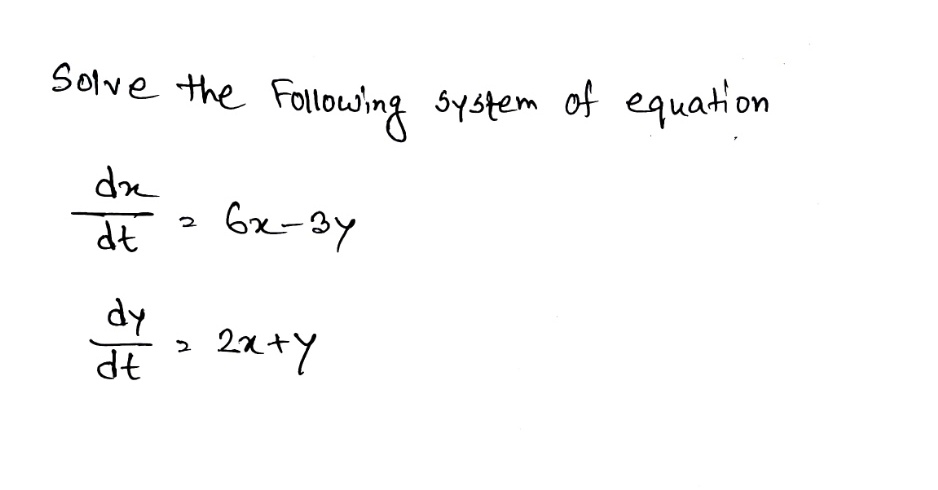 Solve the Following system of equation
dx/dt = 6x-3y
dy/dt = 2x+y